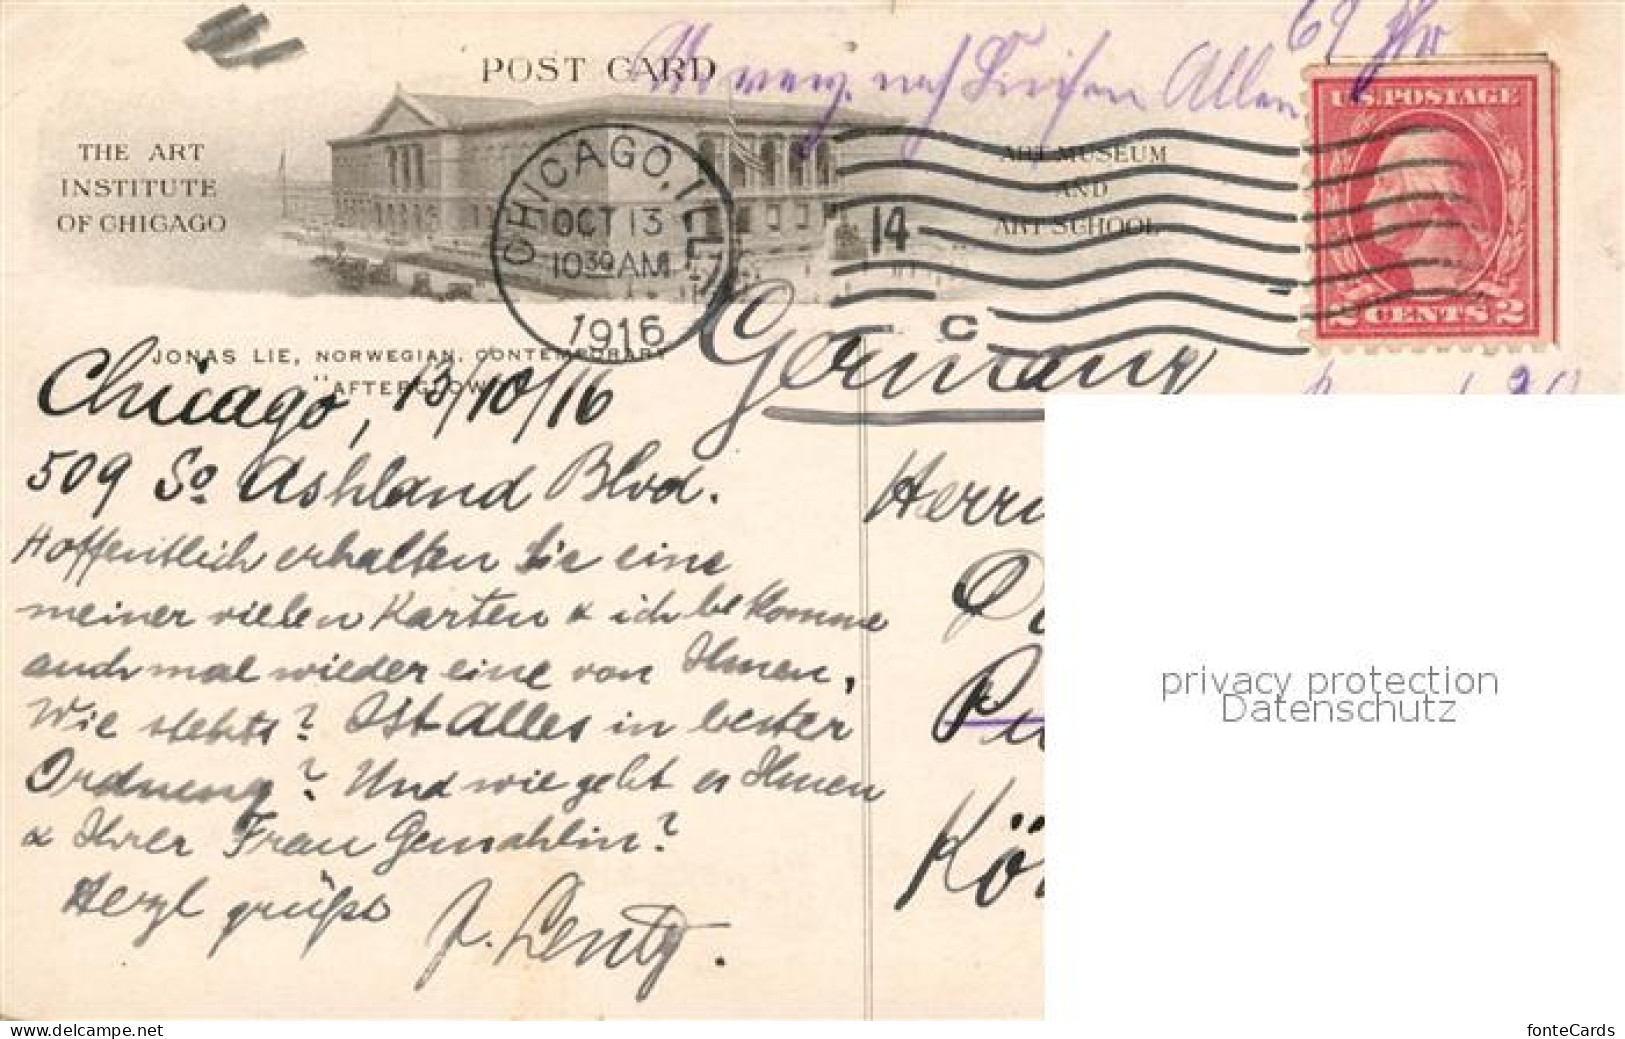 POST CARD
69
nach
Allen
THE ART
INSTITUTE
OF CHICAGO
CHICAGO, ILL.
OCT 13
10 30 AM
1916
14
C
ART MUSEUM
AND
ART SCHOOL
U.S. POSTAGE
2 CENTS 2
JONAS LIE, NORWEGIAN, CONTEMPORARY
"AFTERGLOW"
Germany
Chicago, 13/10/16
509 So Ashland Blvd.
Hoffentlich erhalten Sie eine
meiner vielen Karten & ich bekomme
auch mal wieder eine von Ihnen.
Wie stehts? Ist Alles in bester
Ordnung? Und wie geht es Ihnen
& Ihrer Frau Gemahlin?
Herzl grüßt
J. Lentz.
Herrn
Kö
privacy protection
Datenschutz
www.delcampe.net
fonteCards